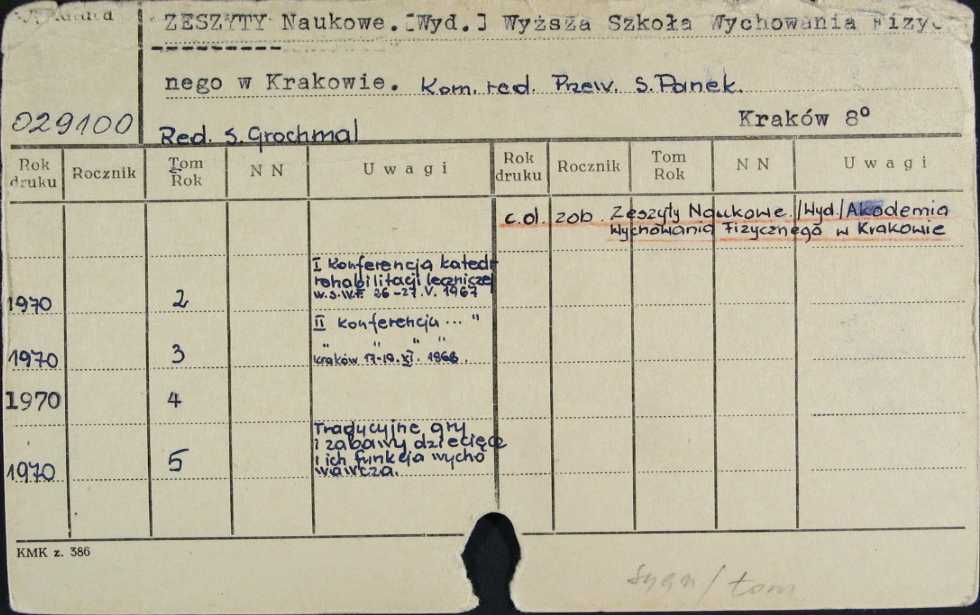 ZESZYTY Naukowe.[Wyd.] Wyższa Szkoła Wychowania Fizycz
nego w Krakowie. Kom. red. Przew. S. Panek.
029100 Red. S. Grochmal Kraków 8°
Rok druku Rocznik Tom Rok N N Uwagi Rok druku Rocznik Tom Rok N N Uwagi
c.d. zob. Zeszyty Naukowe. /Wyd./ Akademia
Wychowania Fizycznego w Krakowie
1970 2 I Konferencja katedr
rehabilitacji leczniczej
W.S.W.F. 26-27.V. 1967
1970 3 II konferencja ... "
" " " "
Kraków 17-19.XI. 1968.
1970 4
1970 5 Tradycyjne gry
i zabawy dziecięce
i ich funkcja wycho
wawcza.
KMK z. 386
sygn/tom